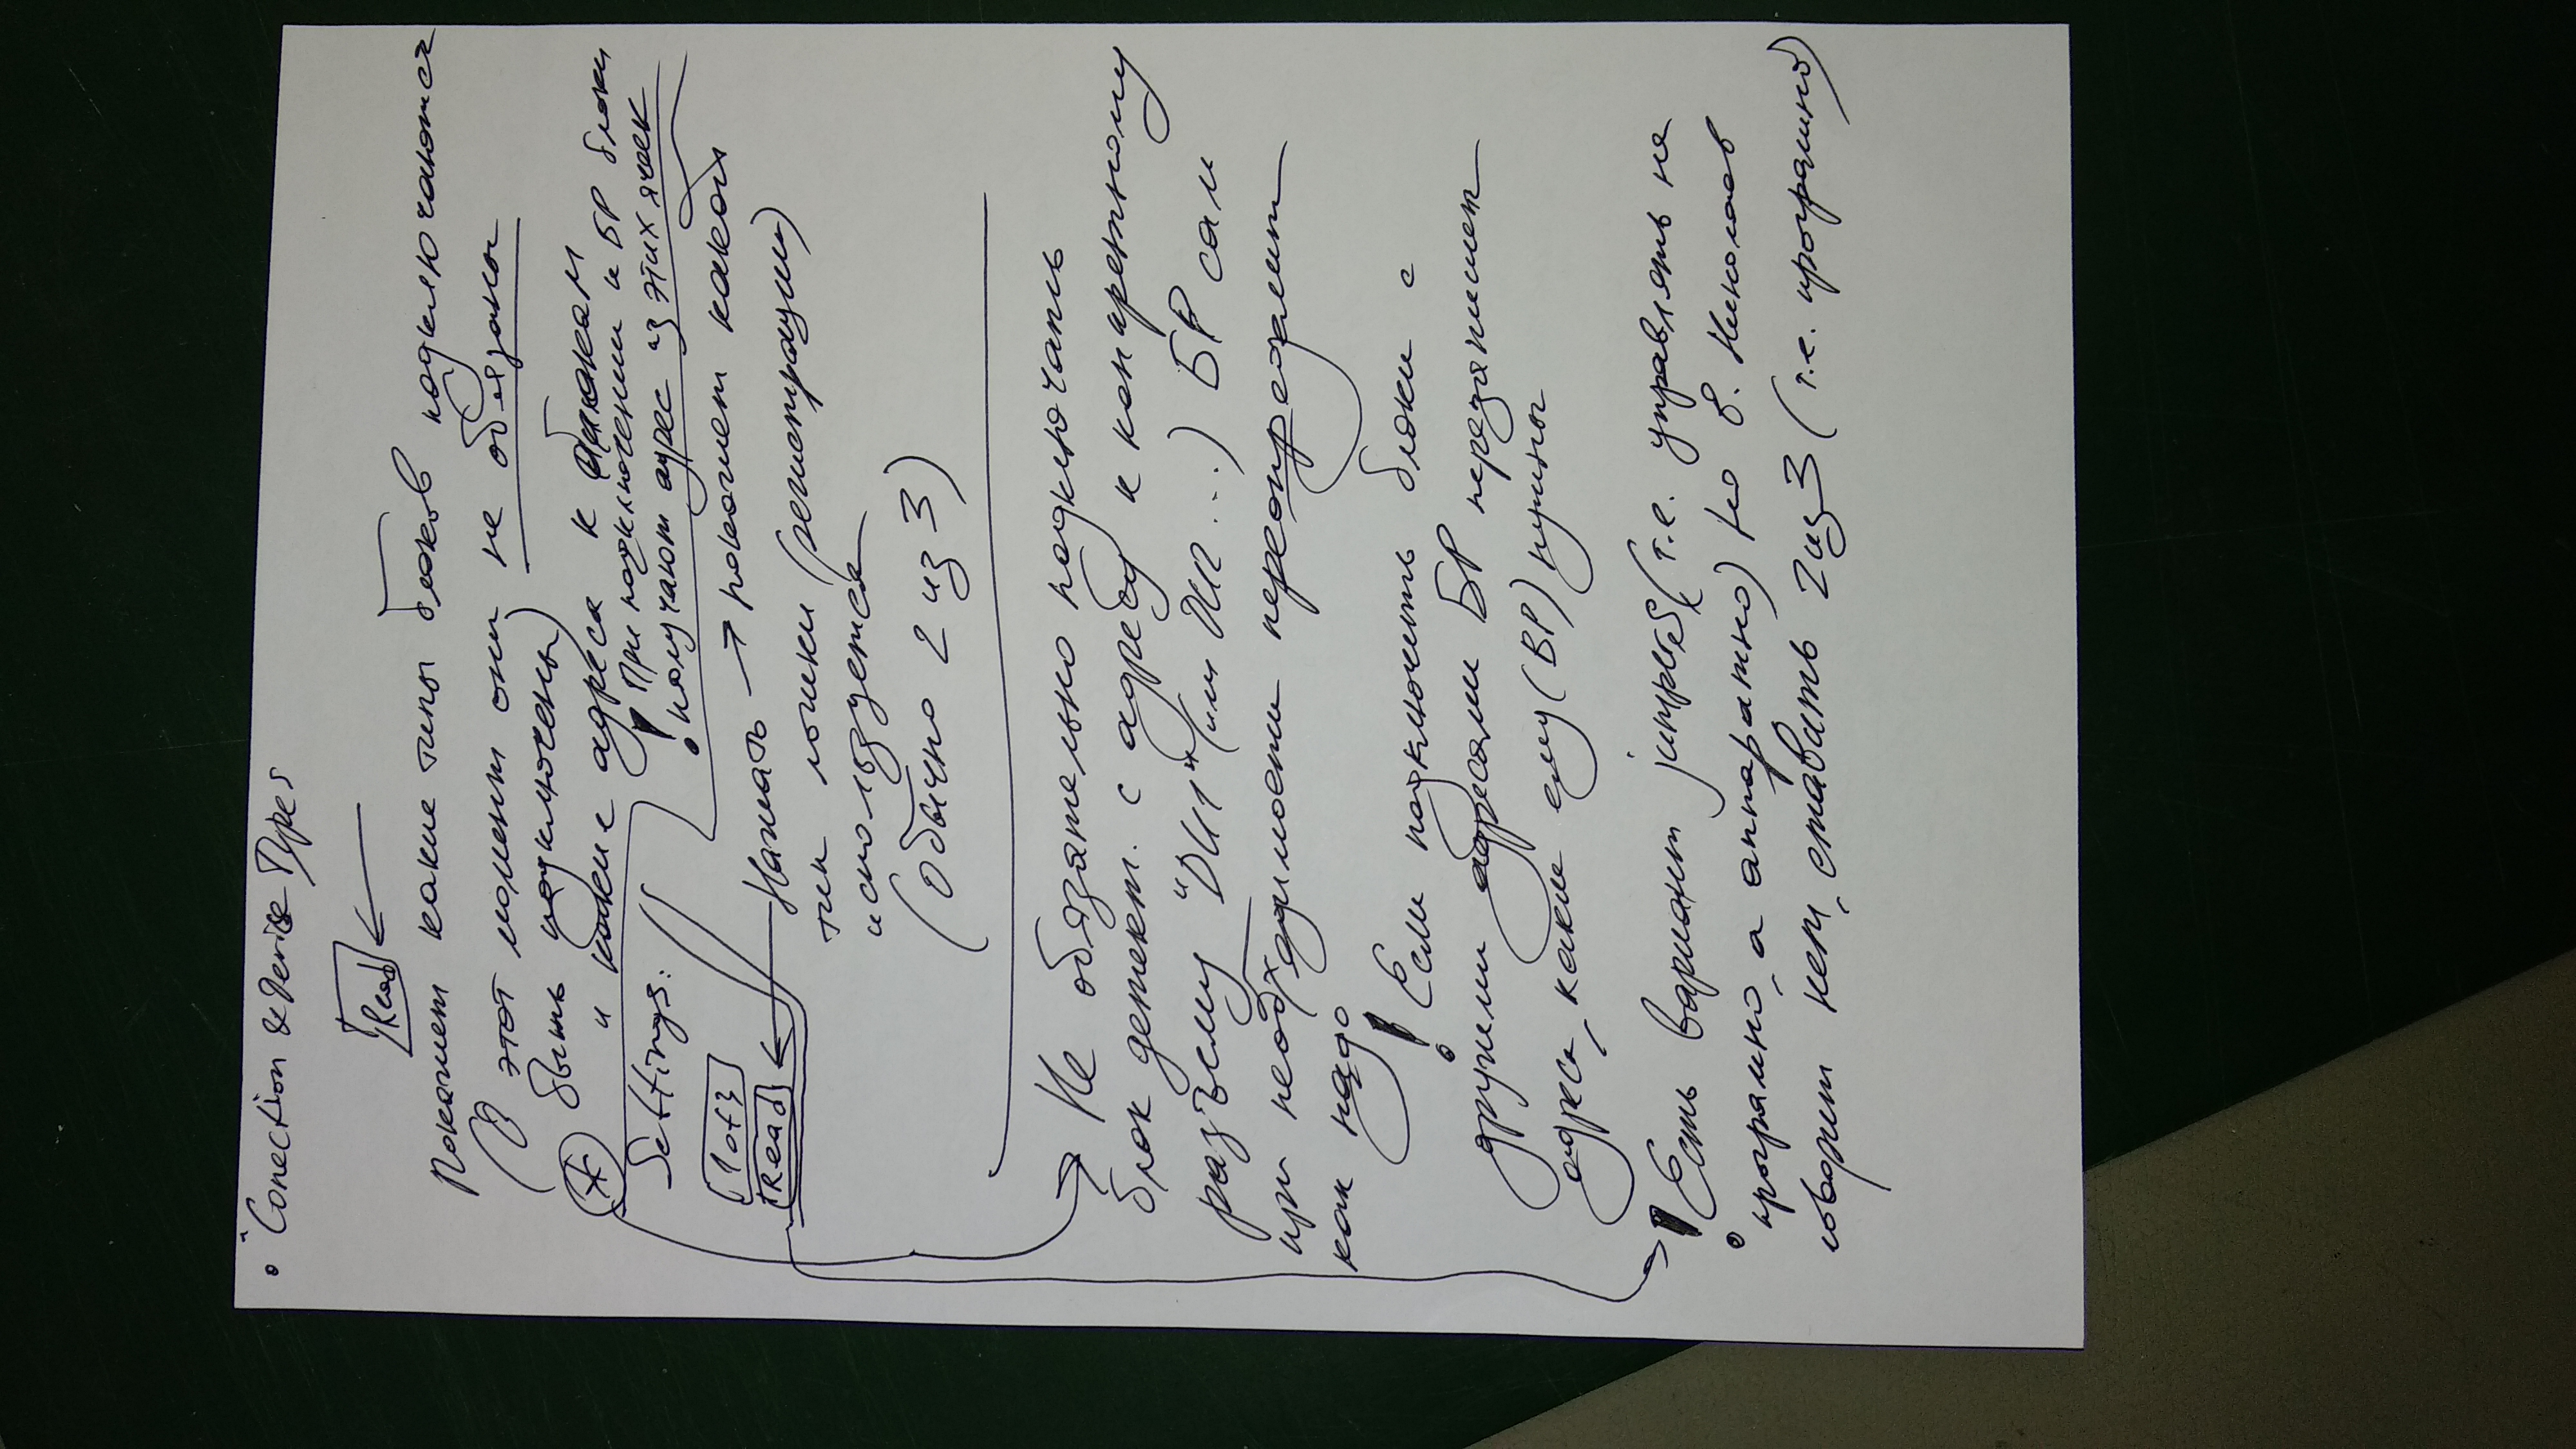 • "Conection & Device Types
Read
Покажет какие типы блоков подключаются
(В этот момент они не обязаны
быть подключены)
и какие адреса к блокам
! При подключении и БР блоки
получают адрес из этих ячеек
Settings:
1of3
Read
Нажать → покажет какой
тип логики (регистрации)
используется
(Обычно 2 из 3)
→ Не обязательно подключать
блок детект. с адре к конкретному
разъему "ДИ1" (или ДИ2...) БР сам
при необходимости переопределит
как надо
! Если подключить блоки с
другими адресами БР перезапишет
адреса, какие ему (БР) нужны
! Есть вариант jumpers (т.е. управлять не
програмно, а аппаратно) Но В. Николаев
говорит нет, ставить 2из3 (т.е. програмно)